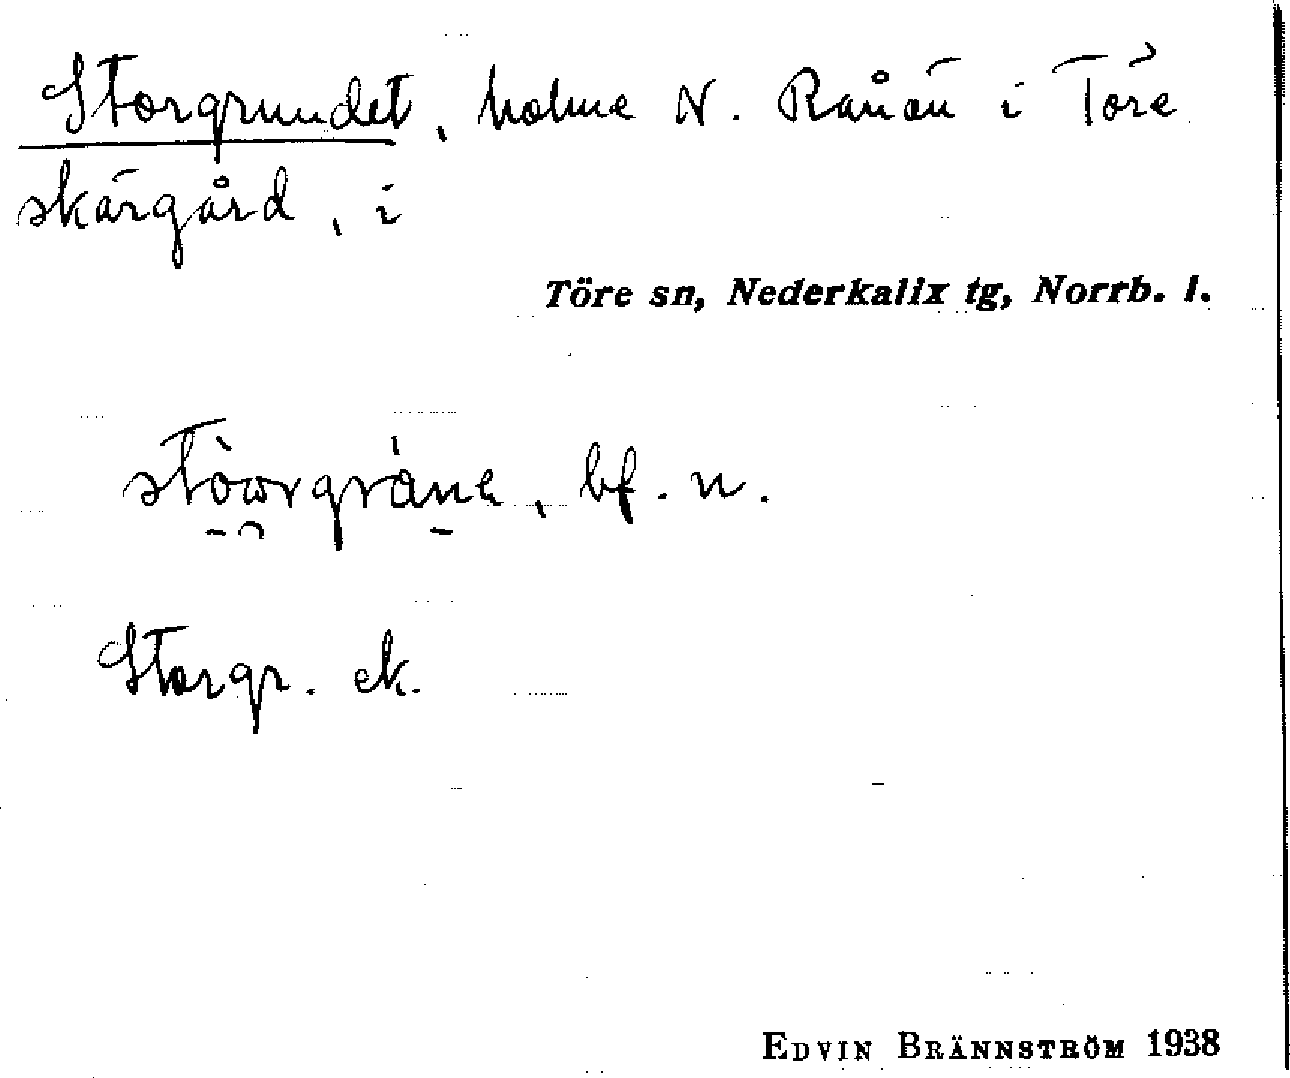 Storgrundet, holme N. Rånön i Töre
skärgård, i
Töre sn, Nederkalix tg, Norrb. l.
bf. n.
Storgr. ek.
EDVIN BRÄNNSTRÖM 1938